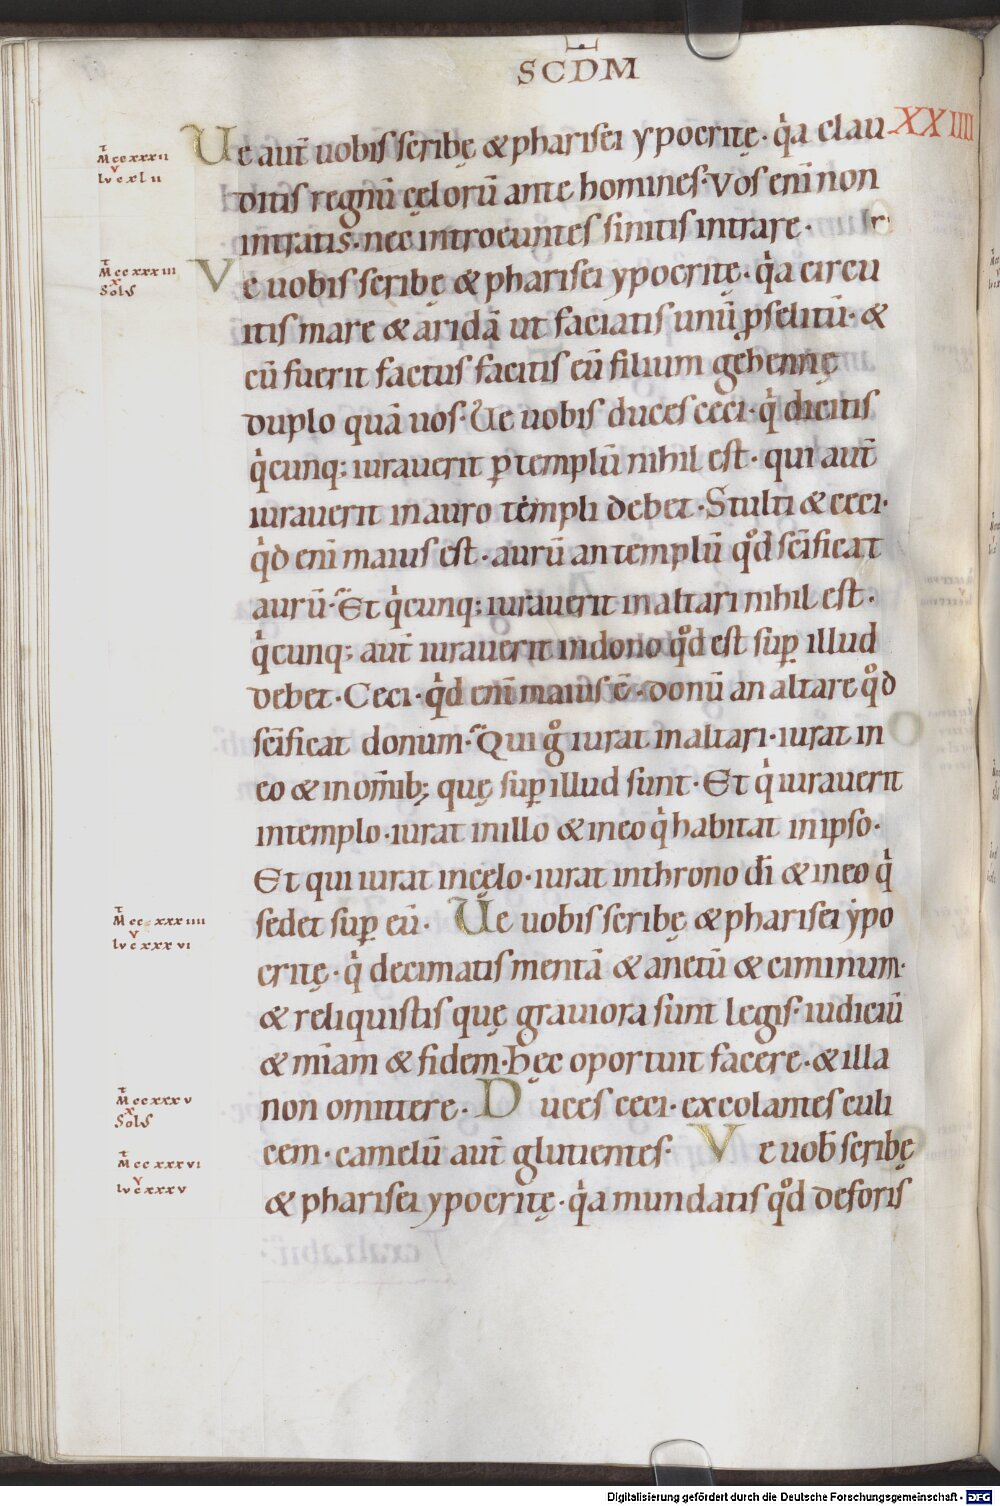 SCDM
XXIIII
Ue aut̄ uobis scribę & pharisei ypocritę· qͥa clau
ditis regnū cęlorū ante homines· Vos enī non
intratis· nec introeuntes sinitis intrare·
Ve uobis scribę & pharisei ypocritę· qͥa circu
itis mare & aridā ut faciatis unū ꝓselitū· &
cū fuerit factus facitis eū filium gehennę
duplo quā uos· Ue uobis duces ceci· qͥ dicitis
qͥcunq; iurauerit ꝑ templū nihil est· qui aut̄
iurauerit in auro templi debet· Stulti & ceci·
qͥd enī maius est· aurū an templū qͦd scīficat
aurū· Et qͥcunq; iurauerit in altari nihil est·
qͥcunq; aut̄ iurauerit in dono qͦd est suꝑ illud
debet· Ceci· qͥd enī maius ē· donū an altare qͦd
scīficat donum· Qui gͦ iurat in altari· iurat in
eo & in om̄ib; quę suꝑ illud sunt· Et qͥ iurauerit
in templo· iurat in illo & in eo qͥ habitat in ipso·
Et qui iurat in cęlo· iurat in throno dī & in eo qͥ
sedet suꝑ eū· Ue uobis scribę & pharisei ypo
critę· qͥ decimatis mentā & anetū & ciminum·
& reliquistis quę grauiora sunt legis· iudiciū
& mīam & fidem· hęc oportuit facere· & illa
non omittere· Duces ceci· excolantes culi
cem· camelū aut̄ glutientes· Ve uob̄ scribę
& pharisei ypocritę· qͥa mundatis qͦd deforis
M ccxxxii
lv cxl ii
M ccxxxiii
Sols
M cc xxxiiii
lv cxxxvi
M ccxxxv
Sols
M ccxxxvi
lv cxxxv
Digitalisierung gefördert durch die Deutsche Forschungsgemeinschaft - DFG